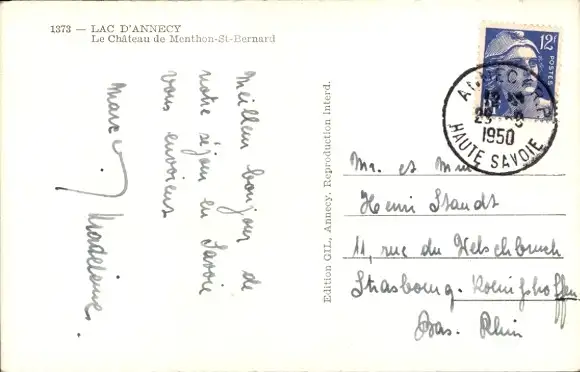 1373 — LAC D'ANNECY
Le Château de Menthon-St-Bernard
Meilleur bonjour de
notre séjour en Savoie
vous envoient
Marcel Madeleine.
Edition GIL, Annecy. Reproduction Interd.
12F
POSTES
ANNECY R.P.
1950
HAUTE SAVOIE
Mr. et Mme
Henri Staudt
11, rue du Welschbruch
Strasbourg-Koenigshoffen
Bas-Rhin